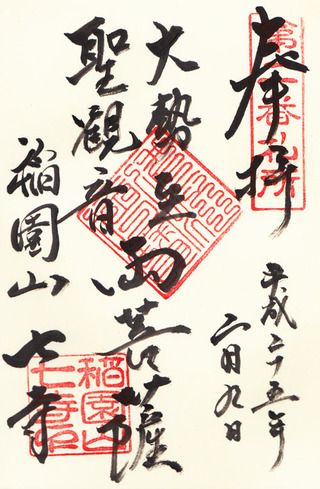 奉拝
平成二十五年
二月九日
大勢至
聖観音
両菩薩
稲園山 七寺
稲園山
七寺印